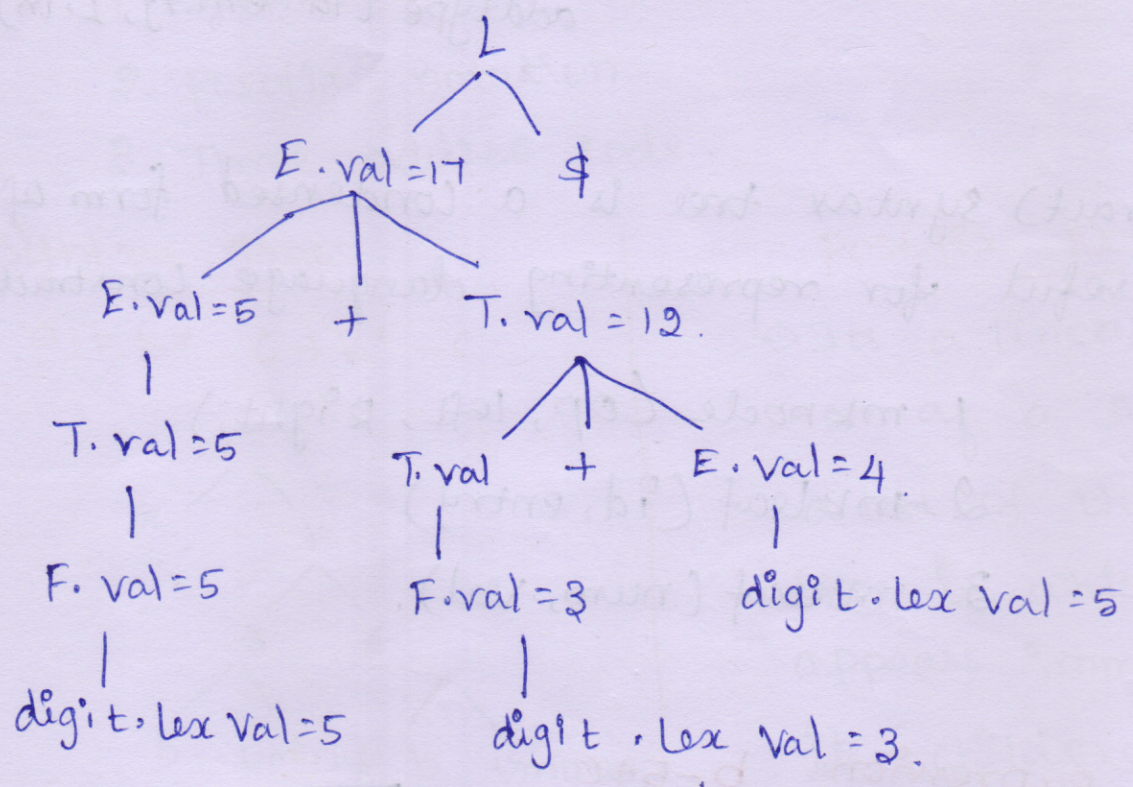 L
E. val=17 $
E. val=5 + T. val = 12.
T. val=5 T. val + E. val=4.
F. val=5 F. val=3 digit. lex val=5
digit. lex val=5 digit. lex val=3.